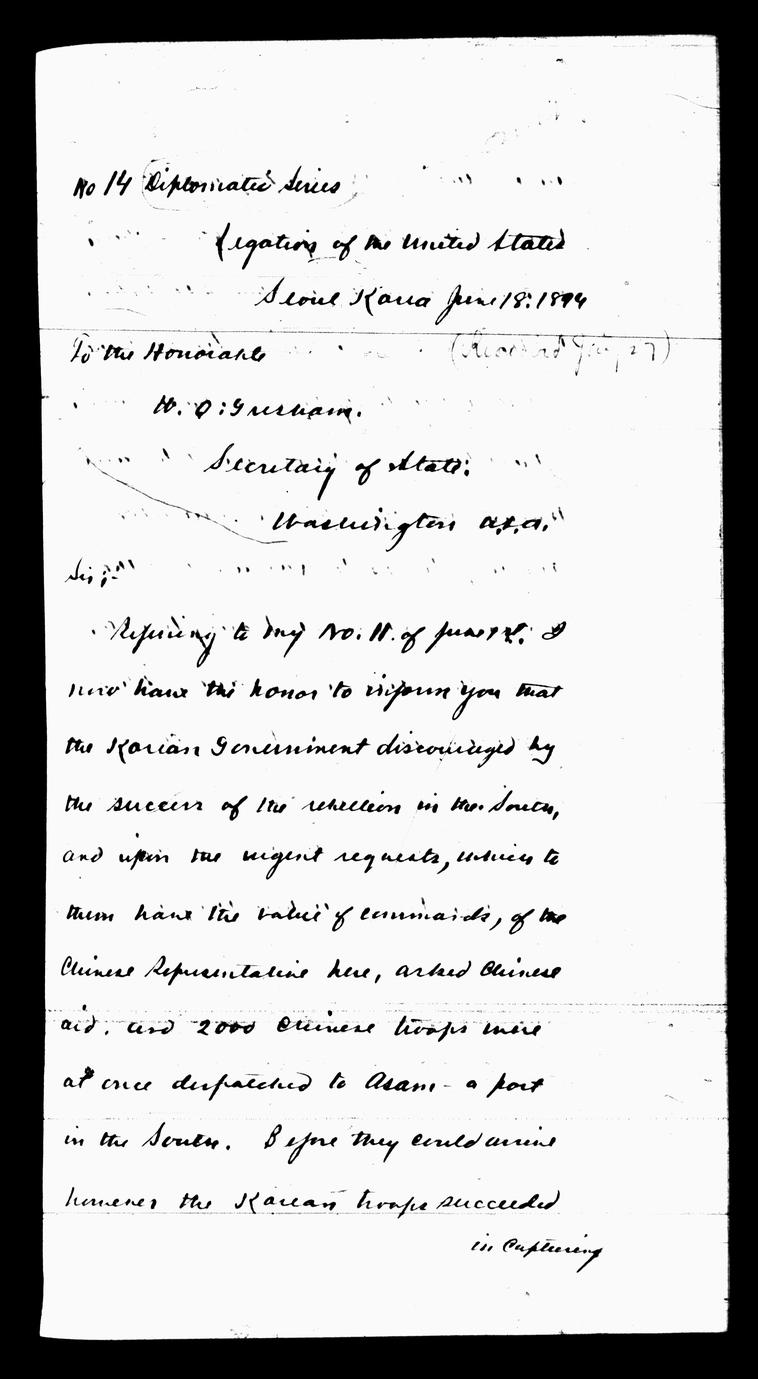 No 14 Diplomatic Series
Legation of the United States
Seoul Korea June 18: 1894
To the Honorable
(Received July 27)
W. Q: Gresham.
Secretary of State:
Washington
Sir;-
Referring to my No. 11. of June I
now have the honor to inform you that
the Korean Government discouraged by
the success of the rebellion in the South,
and upon the urgent requests, which to
them have the value of commands, of the
Chinese Representative here, asked Chinese
aid. and 2000 Chinese troops were
at once despatched to Asam - a port
in the South. Before they could arrive
however the Korean troops succeeded
in Capturing